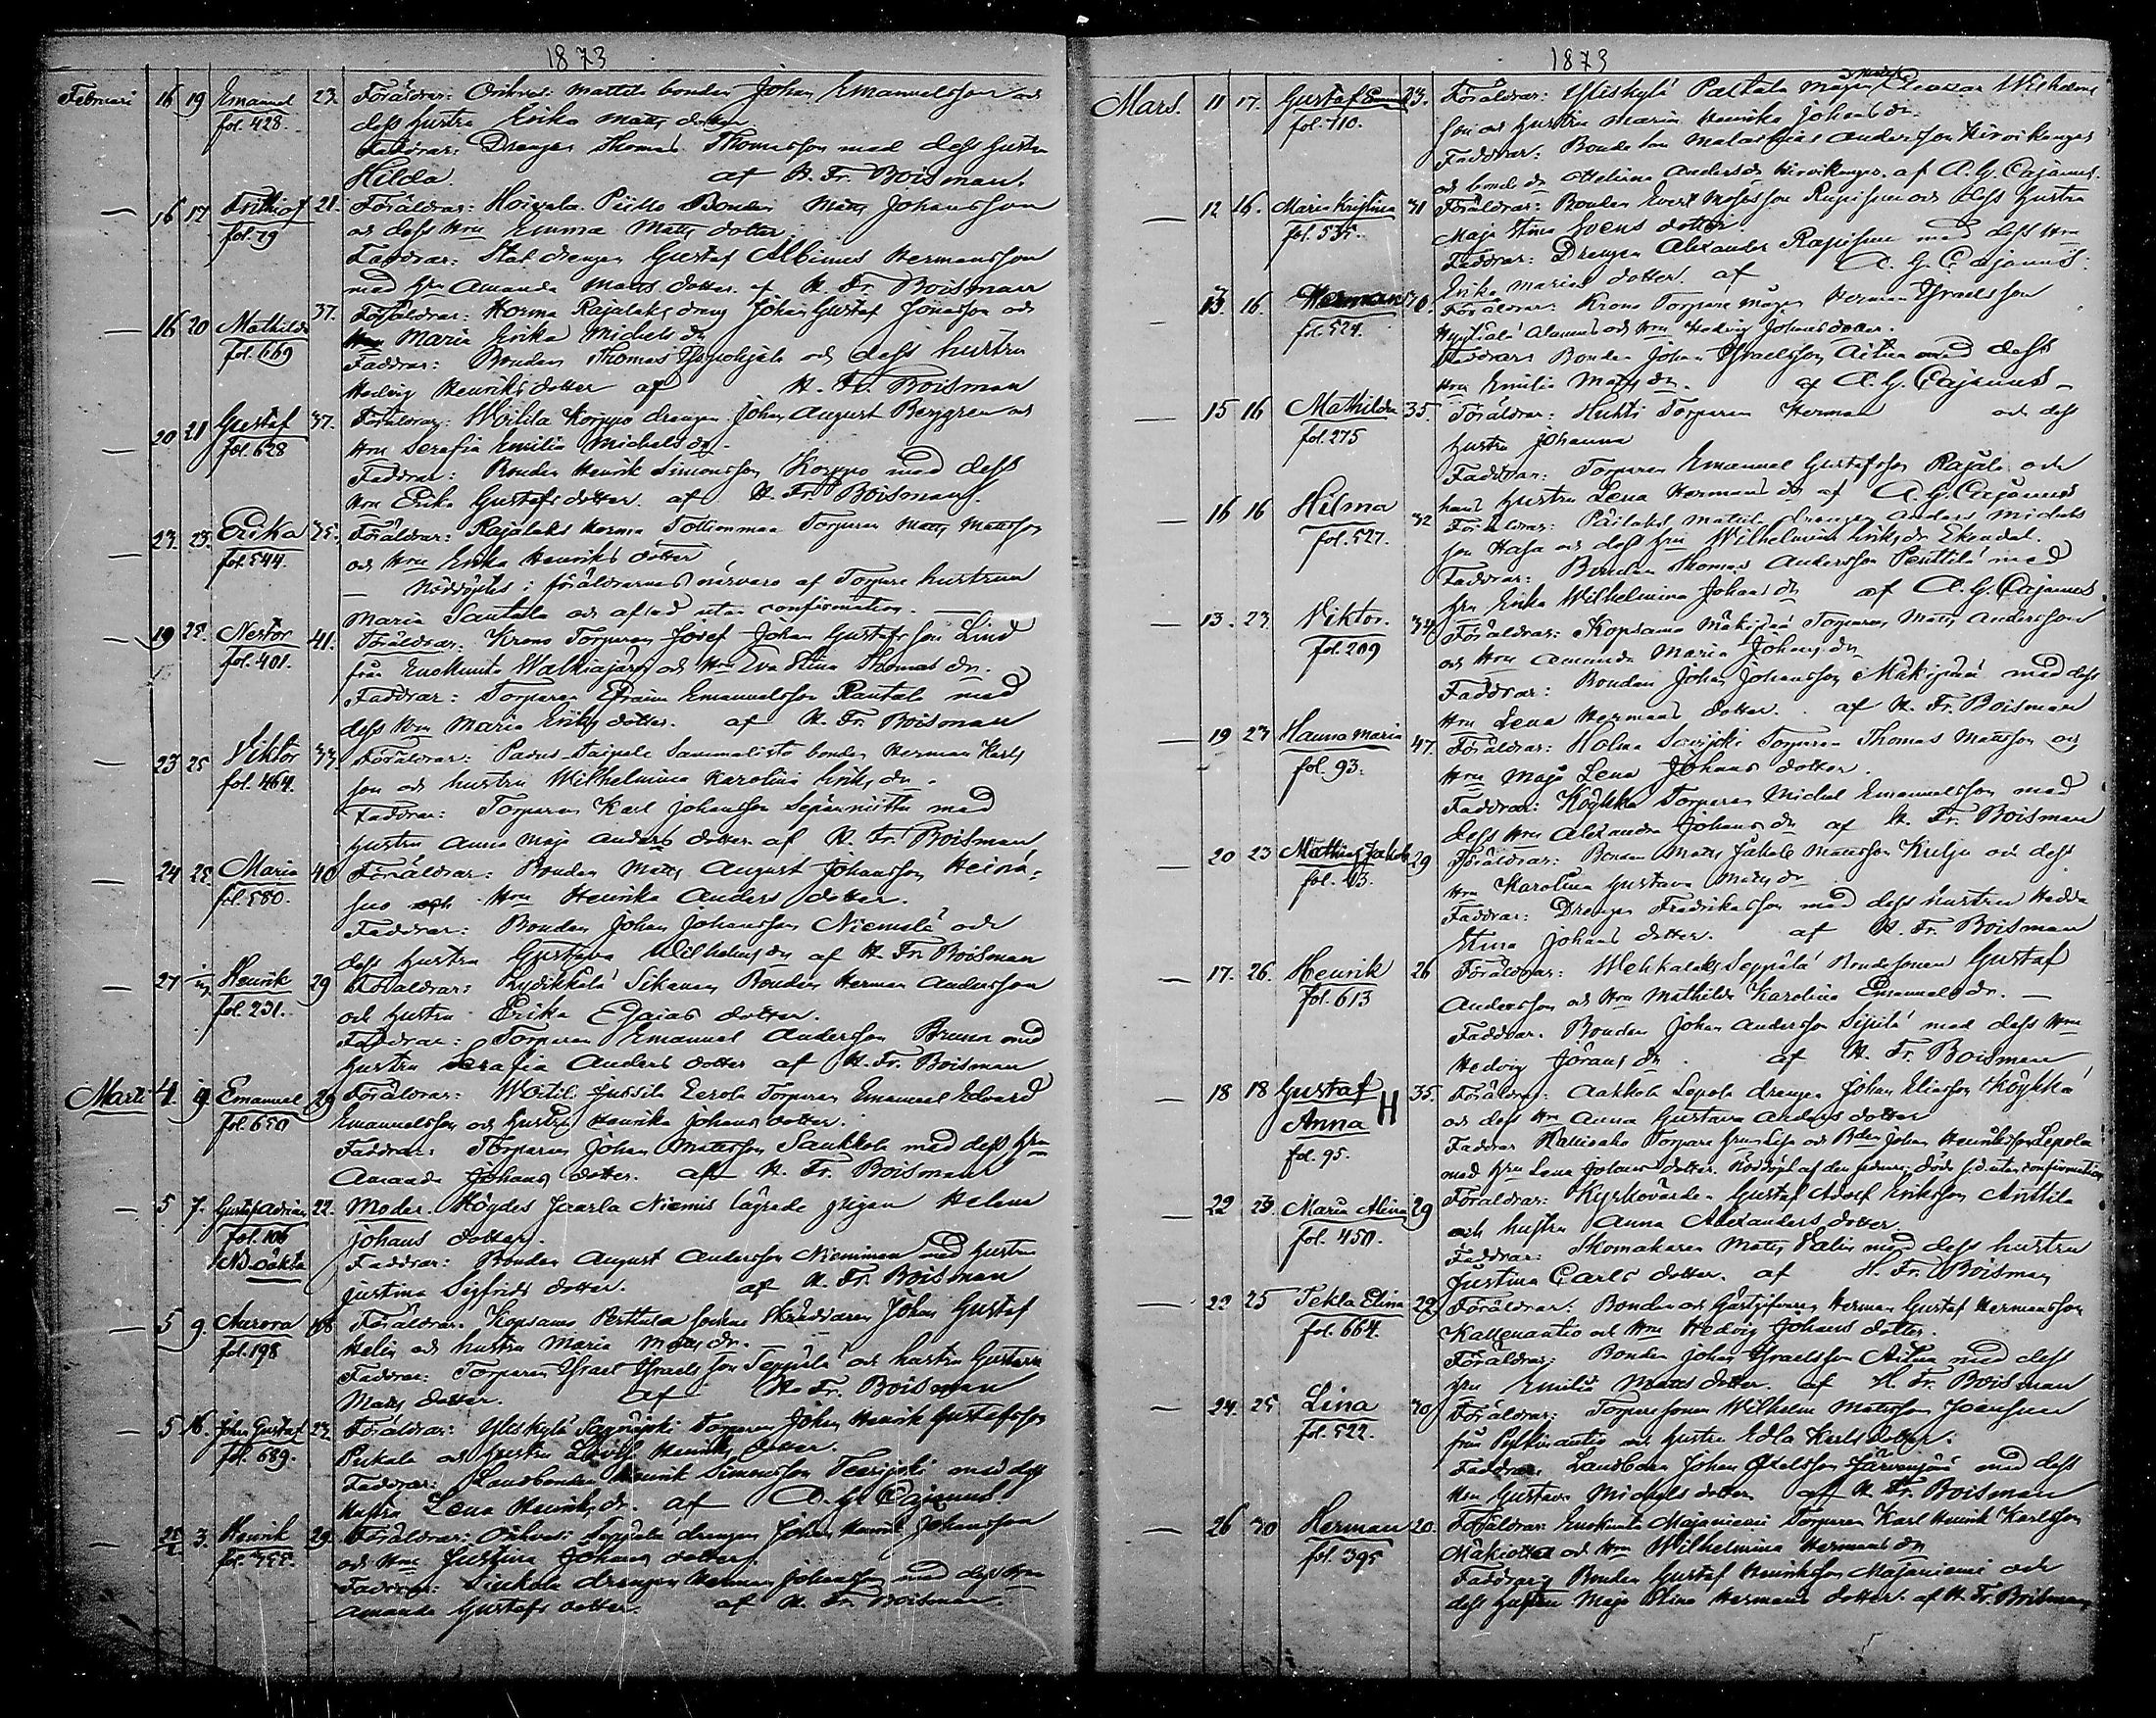 1873
Februari 16 19 Emanuel 23. Föräldrar: Orihvesi Mattila bonden Johan Emanuelsson och
fol. 428. dess hustru Erika Matts dotter
Faddrar: Drengen Thomas Thomasson med dess hustru
Hilda. af H. Fr. Boisman.
— 16 17 Frithiof 21. Föräldrar: Hoivala Bonden Matts Johansson
fol. 19 och dess Hru Emma Matts dotter.
Faddrar: Stat drengen Gustaf Albinus Hermansson
med Hru Amanda Matts dotter. af H. Fr. Boisman
— 16 20 Mathilda 37. Föräldrar: Horma Rajalaks dreng Johan Gustaf Jonasson och
fol. 669 Hru Maria Erika Michels dr
Faddrar: Bonden Thomas Yhpohjala och dess hustru
Hedvig Henriks dotter af H. Fr. Boisman
— 20 21 Gustaf 37. Föräldrar: Woitila Korppo drengen Johan August Berggren och
fol. 628 Hru Serafia Emilia Michels dr.
Faddrar: Bonden Henrik Simonsson Korppo med dess
Hru Erika Gustafs dotter. af H. Fr. Boisman.
— 23. 23. Erika 35. Föräldrar: Rajalaks Horma Torparen Matts Mattsson
fol. 544. och Hru Erika Henriks dotter
— Nöddöptes i föräldrarnes närvaro af Torpare hustrun
Maria Santala och afled utan confirmation. —
— 19 25. Nestor 41. Föräldrar: Krono Torparen Josef Johan Gustafsson Lind
fol. 401. från Enokunta Walkiajärvi och Hru Eva Stina Thomas dr.
Faddrar: Torparen Efraim Emanuelsson Rantala med
dess Hru Maria Eriks dotter. af H. Fr. Boisman
— 23 25 Viktor 33. Föräldrar: Padus Taipale Sammalisto bonden Herman Karls
fol. 464. son och hustru Wilhelmina Karolina Eriks dr.
Faddrar: Torparen Karl Johansson med
hustru Anna Maja Anders dotter af H. Fr. Boisman
— 24 25 Maria 40 Föräldrar: Bonden Matts August Johansson Heinä-
fol. 580. suo och Hru Henrika Anders dotter.
Faddrar: Bonden Johan Johansson Niemelä och
dess hustru Gustava Wilhelms dr af H. Fr. Boisman
— 27 Henrik 29 Föräldrar: Lydikkälä Sikanen Bonden Herman Andersson
fol. 231. och hustru Erika Esaias dotter.
Faddrar: Torparen Emanuel Andersson med
hustru Serafia Anders dotter af H. Fr. Boisman
Mars 4. 9. Emanuel 29 Föräldrar: Woitila Jussila Eerola Torparen Emanuel Edvard
fol. 650 Emanuelsson och hustru Henrika Johans dotter.
Faddrar: Torparen Johan Mattsson Saukkola med dess Hru
Amanda Johans dotter. af H. Fr. Boisman
— 5 7. Gustaf Adrian 22. Moder. Högdes Jaarla Niemis lägrade pigan Helena
fol. 106 Johans dotter.
NB oäkta Faddrar: Bonden August Andersson Nieminen med hustru
Justina Sigfrids dotter. af H. Fr. Boisman
— 5 9. Aurora Föräldrar. Kopsamo Perttula sockne Skräddaren Johan Gustaf
fol. 198 Helin och hustru Maria Matts dr.
Faddrar: Torparen Israel Israelsson Seppälä och hustru Gustava
Matts dotter. af H. Fr. Boisman
— 5 16. Johan Gustaf 23 Föräldrar: Yliskylä Torparen Johan Henrik Gustafsson
fol. 689. Pukala och hustru Lovisa Henriks dotter.
Faddrar: Landbonden Henrik Simonsson med dess
hustru Lena Henriks dr. af A. G. Cajanus.
— 25/2 3. Henrik 29. Föräldrar: Orihvesi Seppälä drengen Johan Henrik Johansson
fol. 355. och Hru Justina Johans dotter.
Faddrar: drengen Herman Johansson med dess Hru
Amanda Gustafs dotter. af H. Fr. Boisman.
1873
Mars. 11 17. Gustaf 23. Föräldrar: Yliskylä Paltala Mågen Eleazar Wilhelms
fol. 710. son och hustru Maria Henrika Johans dr.
Faddrar: Bonde son Malachias Andersson Hirvikangas
och bonde dr Helena Anders dr Hirvikangas. af A. G. Cajanus.
— 12 16. Maria Kristina 31 Föräldrar: Bonden Evert Mosesson och dess hustru
fol. 535. Maja Stina Svens dotter.
Faddrar: Drengen Alexander med dess Hru
Erika Maria dotter. af A. G. Cajanus.
— 13. 16. Herman 30. Föräldrar: Krono Torpare mågen Herman Israelsson
fol. 524. och Hru Hedvig Johans dotter.
Faddrar: Bonden Johan Israelsson med dess
Hru Emilia Matts dr. af A. G. Cajanus —
— 15 16 Mathilda 35. Föräldrar: Huhti Torparen Herman och dess
fol. 275 hustru Johanna
Faddrar: Torparen Emanuel Gustafsson Rajala och
hans hustru Lena Hermans dr af A. G. Cajanus
— 16 16 Hilma 32 Föräldrar: Päilahti Mattila drengen Anders Michels
fol. 527. son Haka och dess Hru Wilhelmina Eriks dr Ekendal.
Faddrar: Bonden Thomas Andersson Penttilä med
Hru Erika Wilhelmina Johans dr af A. G. Cajanus
— 13. 23. Viktor. 34 Föräldrar: Kopsamo Mäkipää Torparen Matts Andersson
fol. 209 och Hru Amanda Maria Johans dr
Faddrar: Bonden Johan Johansson Mäkipää med dess
Hru Lena Hermans dotter. af H. Fr. Boisman
— 19 23 Hanna Maria 47. Föräldrar: Holma Torparen Thomas Mattsson och
fol. 93. Hru Maja Lena Johans dotter.
Faddrar: Köykkä Torparen Michel Emanuelsson med
dess Hru Alexandra Johans dr af H. Fr. Boisman
— 20 23 Mathias Jakob 29 Föräldrar: Bonden Matts Jakob Mattsson Kulju och dess
Hru Karolina Gustava Matts dr
Faddrar: Drengen Fredriksson med dess hustru Hedda
Stina Johans dotter. af H. Fr. Boisman
— 17. 26. Henrik 26 Föräldrar: Wehkalaks Seppälä Bondesonen Gustaf
fol. 613 Andersson och Hru Mathilda Karolina Emanuels dr. —
Faddrar. Bonden Johan Andersson Sipilä med dess Hru
Hedvig Görans dr. af H. Fr. Boisman
— 18 18 Gustaf 35. Föräldrar: Aakkola Lepola drengen Johan Eliasson Köykkä
Anna H och dess Hru Anna Gustava Anders dotter
fol. 95. Faddrar Torpare Hrun Lisa och Bden Johan Henriksson Lepola
med Hru Lena Johans dotter. Nöddöpt af den förra; döde s.d. utan confirmation
— 22 23. Maria Alina 29 Föräldrar: Kyrkovärden Gustaf Adolf Eriksson Anttila
fol. 450. och hustru Anna Alexanders dotter.
Faddrar: Skomakaren Matts Palin med dess hustru
Justina Carls dotter. af H. Fr. Boisman
— 23 25 Tekla Elina 22 Föräldrar: Bonden och Gästgifvaren Herman Gustaf Hermansson
fol. 664. Kallenautio och Hru Hedvig Johans dotter.
Föräldrar: Bonden Johan Israelsson med dess
Hru Emilia Matts dotter. af H. Fr. Boisman
— 24. 25 Lina 30 Föräldrar: Torparesonen Wilhelm Mattsson Joensuu
fol. 522. från och hustru Edla Karls dotter.
Faddrar: Landbonden Johan Axelsson Järvenpää med dess
Hru Gustava Michels dotter. af H. Fr. Boisman
— 26 30 Herman 20. Föräldrar: Enokunta Majaniemi Torparen Karl Henrik Karlsson
fol. 395 och Hru Wilhelmina Hermans dr
Faddrar: Bonden Gustaf Henriksson Majaniemi och
dess hustru Maja Stina Hermans dotter. af H. Fr. Boisman